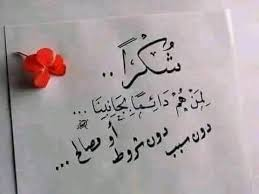 شُكْرَاً ..
لِمَنْ هُمْ دَائِمَاً بِجَانِبِنَا ...
دون سبب دون شروط أو مصالح ...